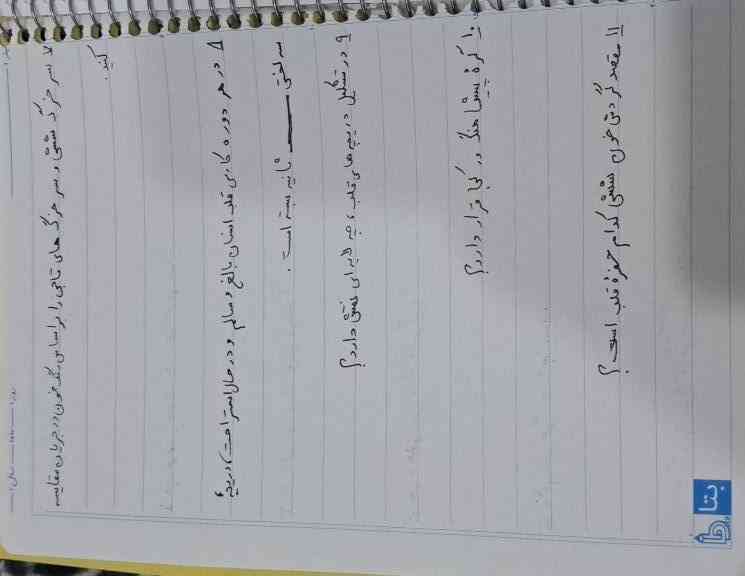 ۷ سرخرگ ششی و سرخرگ های تاجی را بر اساس رنگ خون در جریان مقایسه
کنید.
۸ در هر دوره کاری قلب انسان بالغ و سالم و در حال استراحت، دریچهٔ
سه لختی ـــــ ثانیه بسته است.
۹ در تشکیل دریچه های قلب، چه لایه ای نقش دارد؟
۱۰ گره پیشاهنگ در کجا قرار دارد؟
۱۱ مقصد گردش خون ششی کدام حفرهٔ قلب است؟
بتا